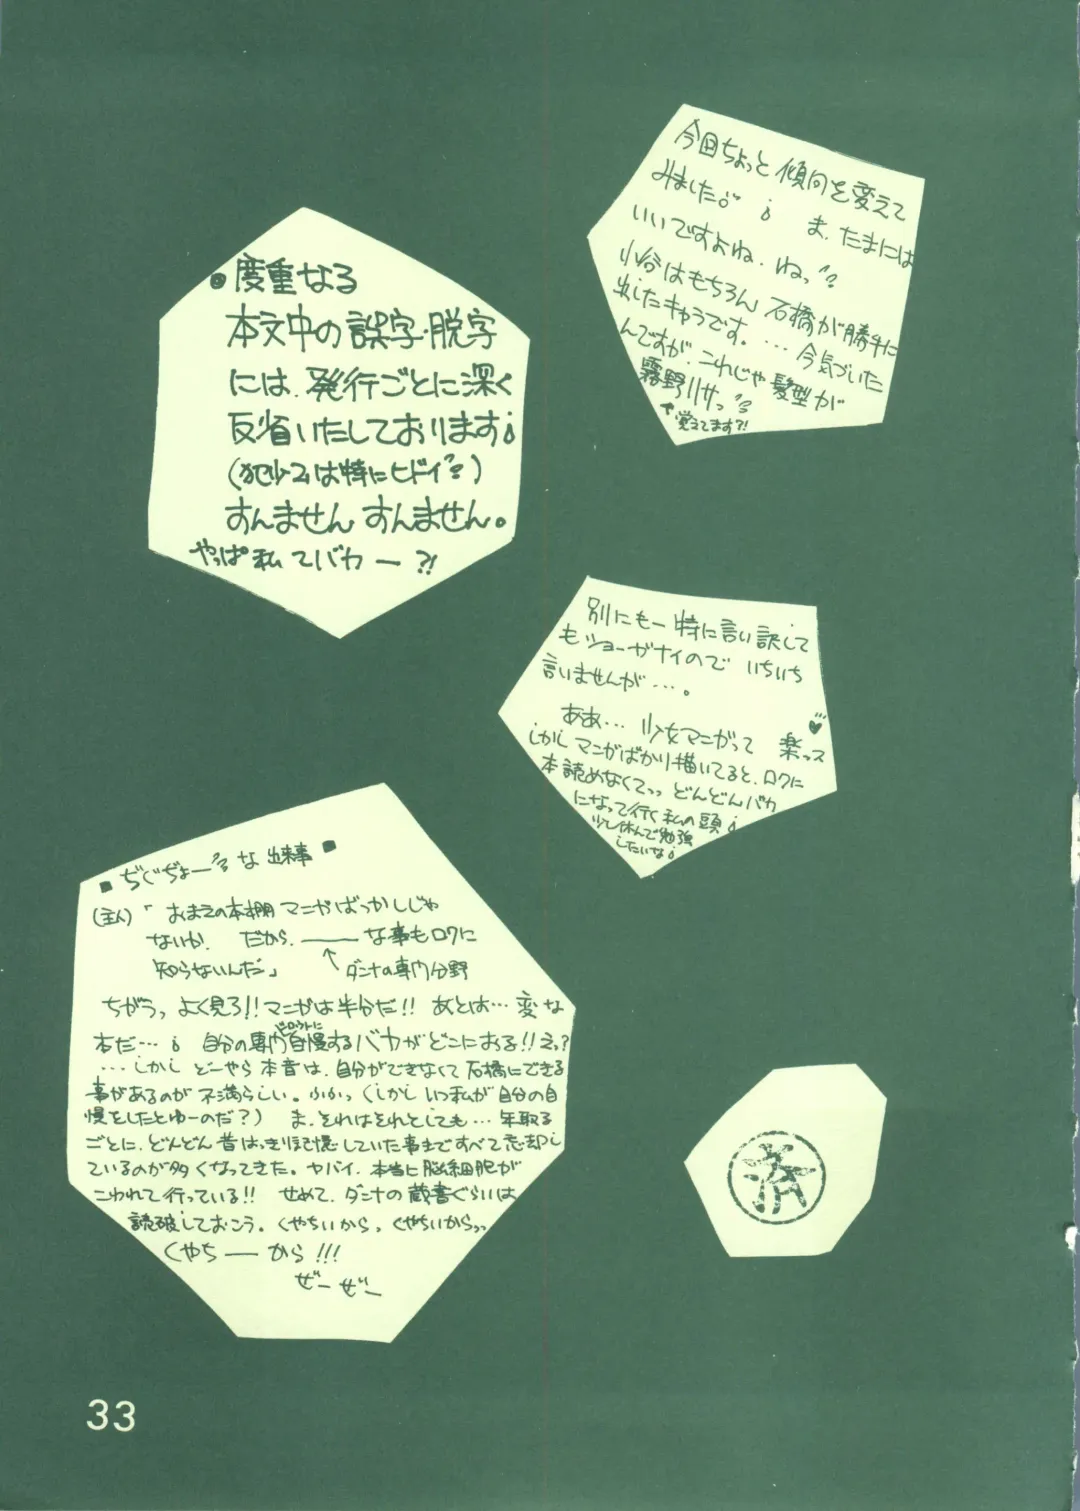 今回ちょっと傾向を変えて
みました。 ま、たまには
いいですよね、ねっ
小谷はもちろん石橋が勝手に
出したキャラです。… 今気づいた
んですが、これじゃ髪型が
霧野リサっ
覚えてます?!
度重なる
本文中の誤字・脱字
には、発行ごとに深く
反省いたしております
(犯少2は特にヒドイ)
すんませんすんません。
やっぱ私てバカー?!
別にもー特に言い訳して
もショーガナイので いちいち
言いませんが…。
ああ… 少女マンガって 楽っス
しかしマンガばかり描いてると、ロクに
本読めなくてっっ どんどんバカ
になって行く私の頭
少し休んで勉強
したいな
■ぢぐぢょーな出来事■
(主人)「おまえの本棚マンガばっかしじゃ
ないか。 だから、――な事もロクに
知らないんだ」 ↑ダンナの専門分野
ちがうっ、よく見ろ!!マンガは半分だ!! あとは…変な
本だ… 自分の専門自慢するバカがどこにおる!!えっ?
…しかし どーやら本音は、自分ができなくて石橋にできる
事があるのが不満らしい。ふふっ(しかしいつ私が自分の自
慢をしたとゆーのだ?) ま、それはそれとしても…年取る
ごとに、どんどん昔はっきり記憶していた事まですべて忘却し
ているのが多くなってきた。ヤバイ、本当に脳細胞が
こわれて行っている!! せめて、ダンナの蔵書ぐらいは
読破しておこう。くやちいから、くやちいからっっ
くやち――から!!!
ぜーぜー
済
33